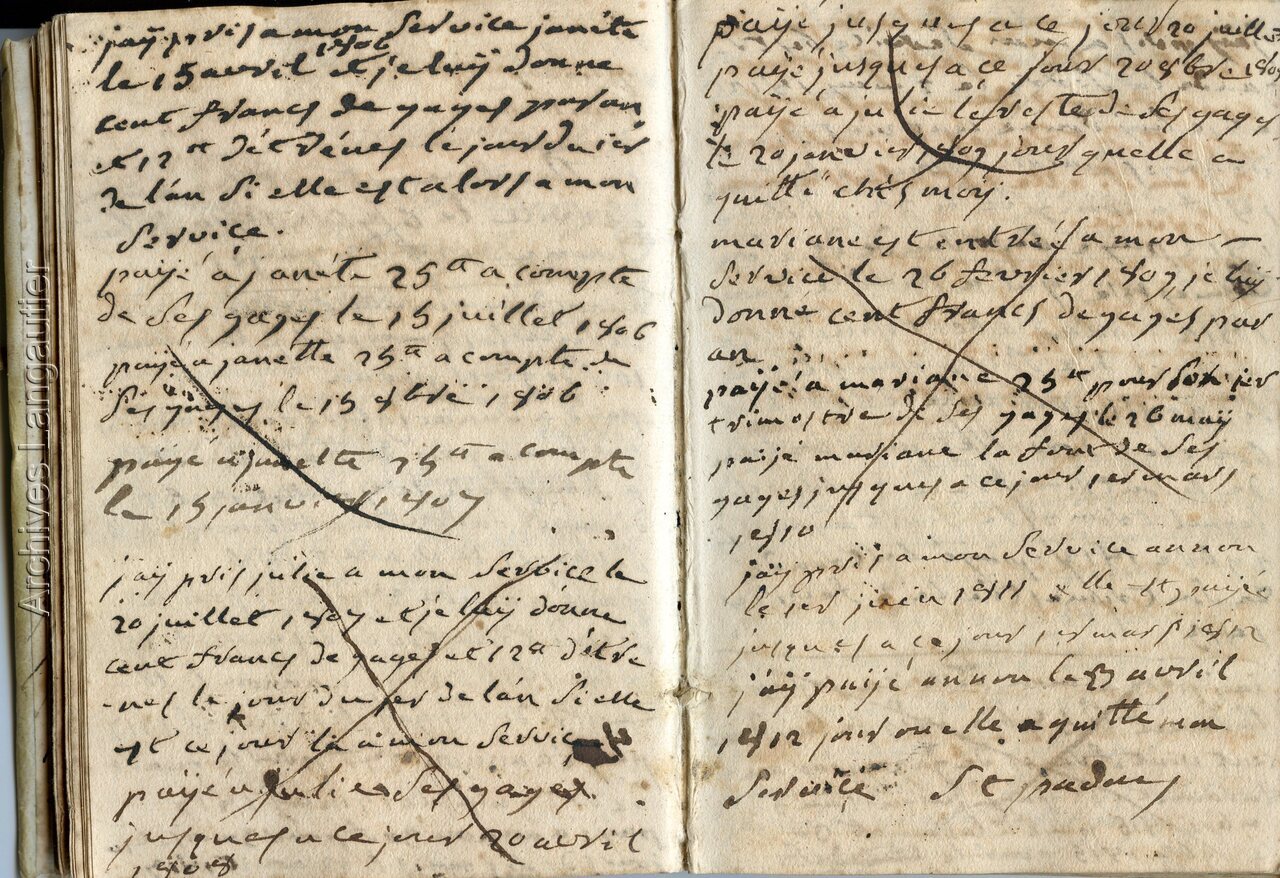 jaÿ pris a mon service janéte
le 15 avril 1806 et je luÿ donne
cent francs de gages par an
et 12 ᵗᵗ d'étrénes le jour du 1er
de l'an si elle est alors a mon
service.
païjé à janéte 25 ᵗᵗ a compte
de ses gages le 15 juillet 1806
païjé a janette 25 ᵗᵗ a compte de
ses gages le 15 8bre 1806
païjé a janette 25 ᵗᵗ a compte
le 15 janvier 1807
jaÿ pris julie a mon service le
20 juillet 1807 et je luÿ donne
cent francs de gages et 12 ᵗᵗ d'étre
-nes le jour du 1er de l'an si elle
est ce jour la a mon service
païjé a julie ses gages
jusques a ce jour 20 avril
1808
païjé jusques a ce jour 20 juillet
païjé jusques a ce jour 20 8bre 1808
païjé a julie le reste de ses gages
le 20 janvier 1809 jour quelle a
quitté chés moÿ.
mariane est entrée a mon
service le 26 fevrier 1809 je luÿ
donne cent francs de gages par
an
païjé a mariane 25 ᵗᵗ pour son 1er
trimestre de ses gages le 26 maÿ
païjé mariane la four de ses
gages jusques a ce jour 1er mars
1810
jaÿ pris a mon service annon
le 1er juin 1811 elle est païjé
jusques a ce jour 1er mars 1812
j'aÿ païjé annon le avril
1812 jour ou elle a quitté mon
service St padou
Archives Langautier